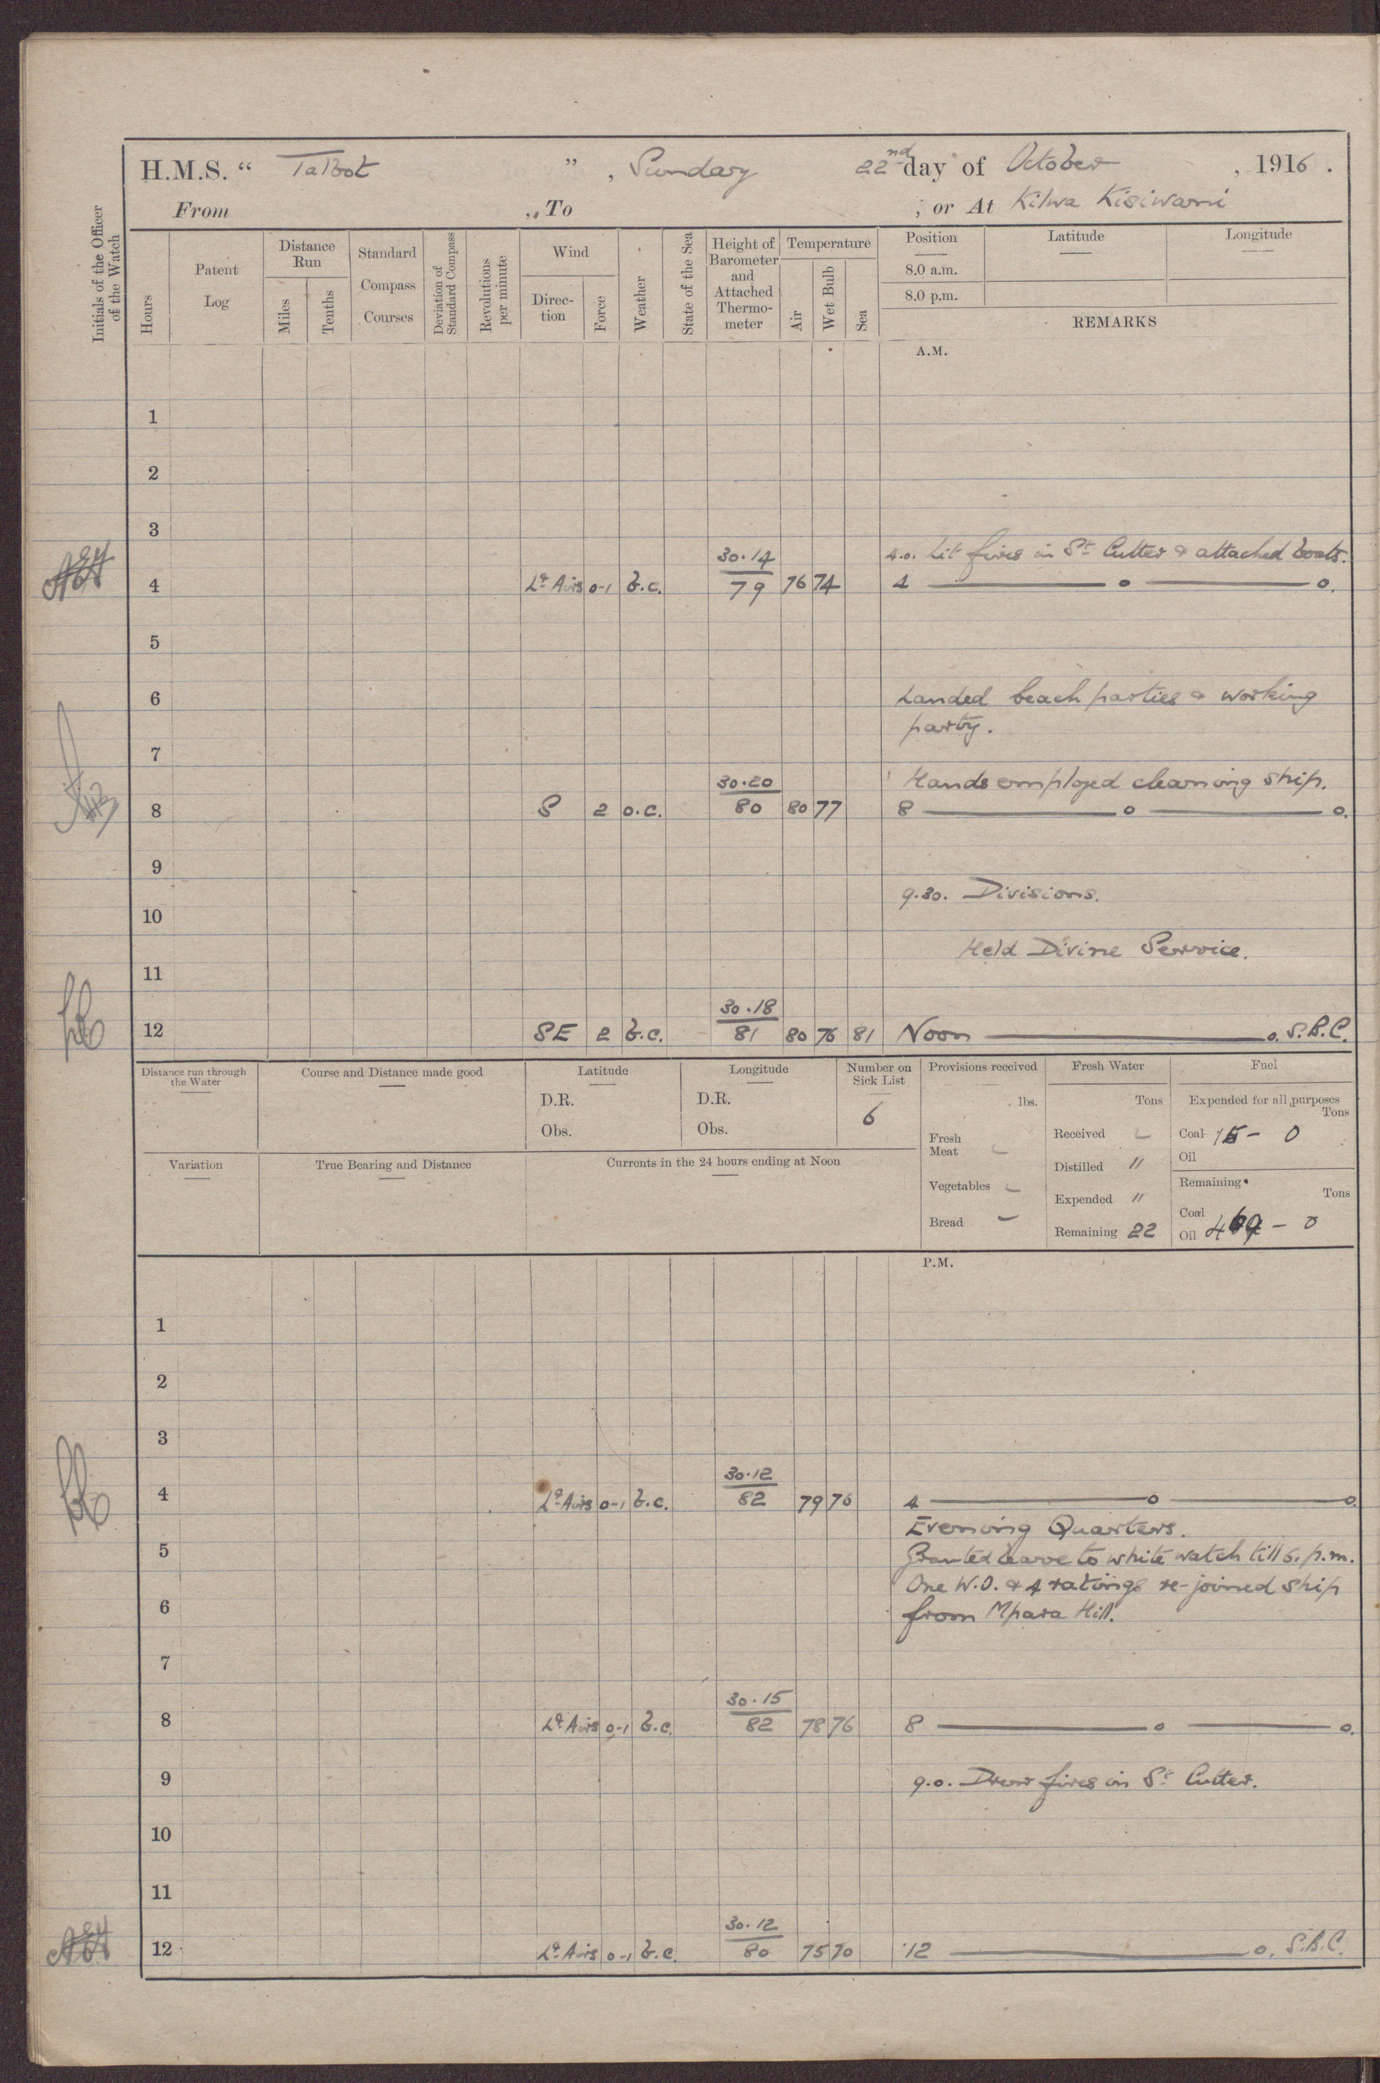 H.M.S. “ Talbot ”, Sunday 22nd day of October, 1916.
From ,, To , or At Kilwa Kisiwani
Initials of the Officer of the Watch
Hours
Patent Log
Distance Run
Miles
Tenths
Standard Compass Courses
Deviation of Standard Compass
Revolutions per minute
Wind
Direction
Force
Weather
State of the Sea
Height of Barometer and Attached Thermometer
Temperature
Air
Wet Bulb
Sea
Position Latitude Longitude
8.0 a.m.
8.0 p.m.
REMARKS
A.M.
1
2
3
30.14 4.0. Lit fires in St. Cutter & attached boats.
4 Lt. Airs 0-1 b.c. 79 76 74 4 o o.
5
6 Landed beach parties & working
party.
7
30.20 Hands employed cleaning ship.
8 S 2 o.c. 80 80 77 8 o o.
9
9.30. Divisions.
10
Held Divine Service.
11
30.18
12 SE 2 b.c. 81 80 76 81 Noon o. S.B.C.
Distance run through the Water
Course and Distance made good
Latitude
D.R.
Obs.
Longitude
D.R.
Obs.
Number on Sick List
6
Provisions received
lbs.
Fresh Meat -
Vegetables -
Bread -
Fresh Water
Tons
Received -
Distilled "
Expended "
Remaining 22
Fuel
Expended for all purposes
Tons
Coal 15 - 0
Oil
Remaining
Tons
Coal
Oil 469 - 0
Variation
True Bearing and Distance
Currents in the 24 hours ending at Noon
P.M.
1
2
3
30.12
4 Lt. Airs 0-1 b.c. 82 79 76 4 o o
Evening Quarters.
5 Granted leave to white watch till 6. p.m.
One W.O. & 4 ratings re-joined ship
6 from Mpara Hill.
7
30.15
8 Lt. Airs 0-1 b.c. 82 78 76 8 o o.
9 9.0. Drew fires in St. Cutter.
10
11
30.12
12 Lt. Airs 0-1 b.c. 80 75 70 12 o. S.B.C.